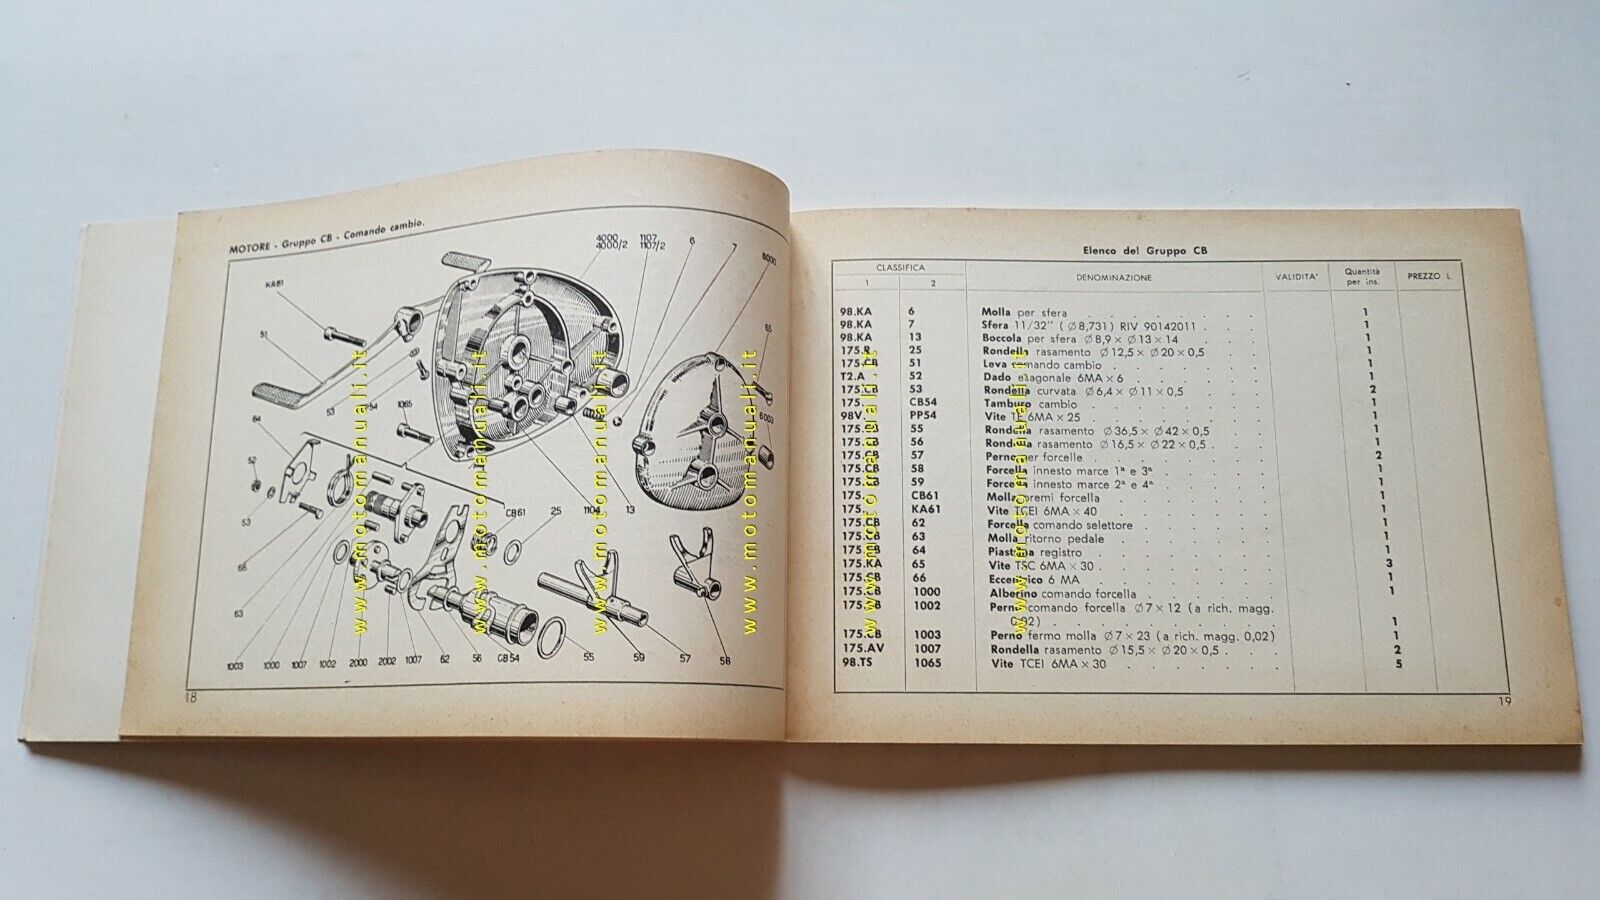 MOTORE - Gruppo CB - Comando cambio.
4000 1107 6 7 8000
4000/2 1107/2
KA61
51
65
53 PP54 1065
64
6003
52
53
CB61 25 1104 13
66
63
1003 1000 1007 1002 2000 2002 1007 62 56 CB54 55 59 57 58
18
www.motomanuali.it
www.motomanuali.it
www.motomanuali.it
www.motomanuali.it
www.motomanuali.it
www.motomanuali.it
Elenco del Gruppo CB
CLASSIFICA DENOMINAZIONE VALIDITA' Quantità per ins. PREZZO L.
1 2
98.KA 6 Molla per sfera 1
98.KA 7 Sfera 11/32" (Ø8,731) RIV 90142011 1
98.KA 13 Boccola per sfera Ø8,9 × Ø13 × 14 1
175.R 25 Rondella rasamento Ø12,5 × Ø20 × 0,5 1
175.CB 51 Leva comando cambio 1
T2.A 52 Dado esagonale 6MA × 6 1
175.CB 53 Rondella curvata Ø6,4 × Ø11 × 0,5 2
175. CB54 Tamburo cambio 1
98V. PP54 Vite TE 6MA × 25 1
175.CB 55 Rondella rasamento Ø36,5 × Ø42 × 0,5 1
175.CB 56 Rondella rasamento Ø16,5 × Ø22 × 0,5 1
175.CB 57 Perno per forcelle 2
175.CB 58 Forcella innesto marce 1ª e 3ª 1
175.CB 59 Forcella innesto marce 2ª e 4ª 1
175. CB61 Molla premi forcella 1
175. KA61 Vite TCEI 6MA × 40 1
175.CB 62 Forcella comando selettore 1
175.CB 63 Molla ritorno pedale 1
175.CB 64 Piastrina registro 1
175.KA 65 Vite TSC 6MA × 30 3
175.CB 66 Eccentrico 6 MA 1
175.CB 1000 Alberino comando forcella 1
175.CB 1002 Perno comando forcella Ø7 × 12 (a rich. magg.
0,02) 1
175.CB 1003 Perno fermo molla Ø7 × 23 (a rich. magg. 0,02) 1
175.AV 1007 Rondella rasamento Ø15,5 × Ø20 × 0,5 2
98.TS 1065 Vite TCEI 6MA × 30 5
19